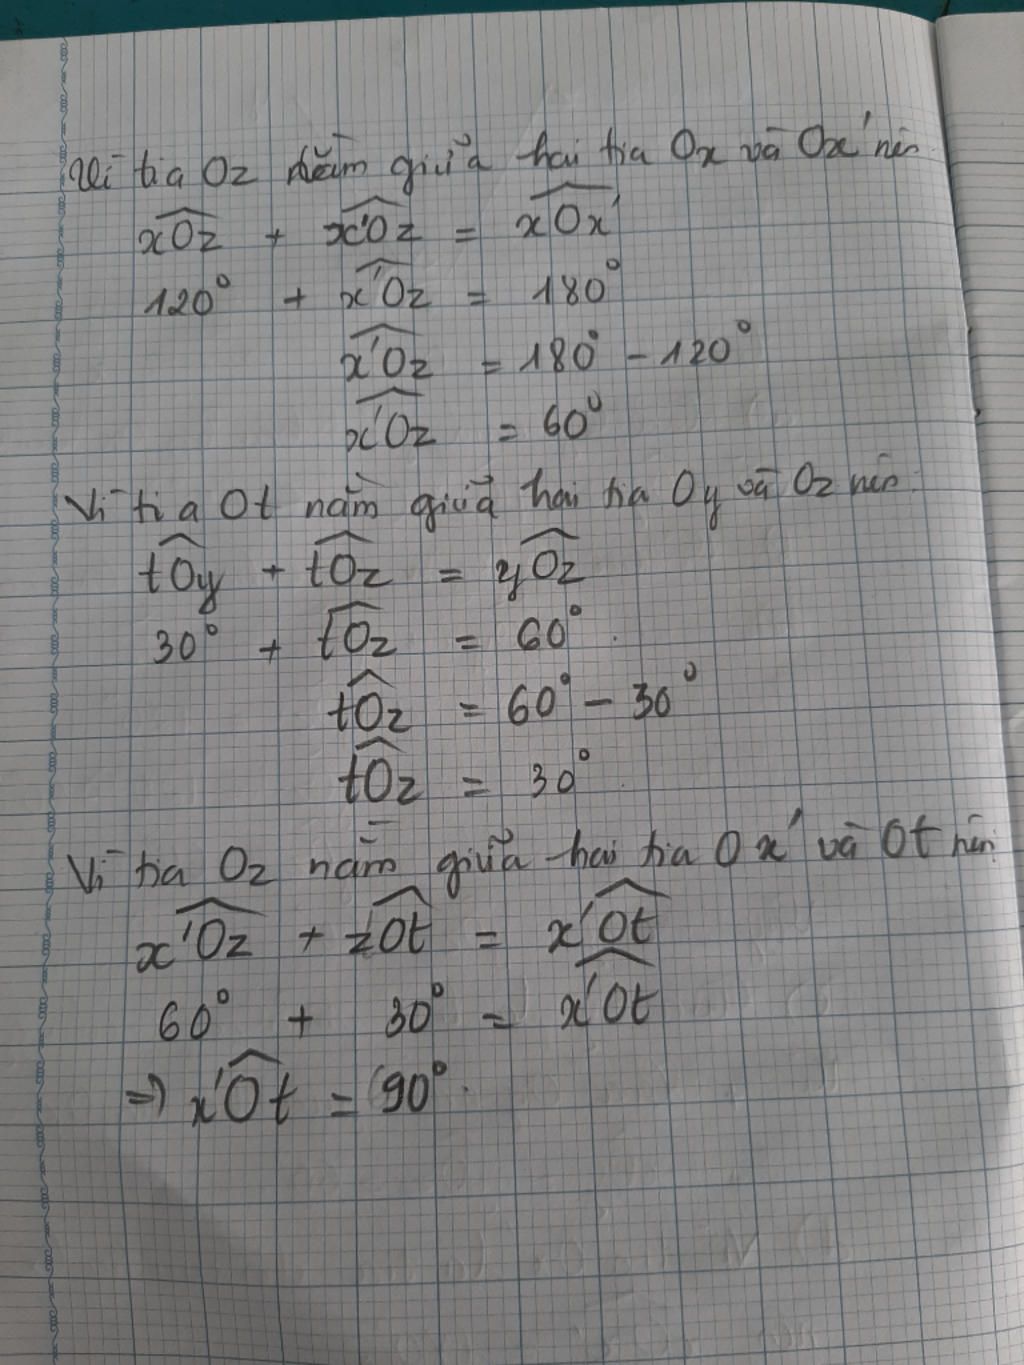 Vì tia Oz nằm giữa hai tia Ox và Ox' nên
xOz + x'Oz = xOx'
120° + x'Oz = 180°
x'Oz = 180° - 120°
x'Oz = 60°
Vì tia Ot nằm giữa hai tia Oy và Oz nên
tOy + tOz = yOz
30° + tOz = 60°
tOz = 60° - 30°
tOz = 30°
Vì tia Oz nằm giữa hai tia Ox' và Ot nên
x'Oz + zOt = x'Ot
60° + 30° = x'Ot
=> x'Ot = 90°